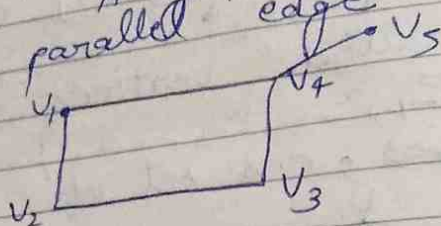 parallel edge
V5
V4
V1
V3
V2